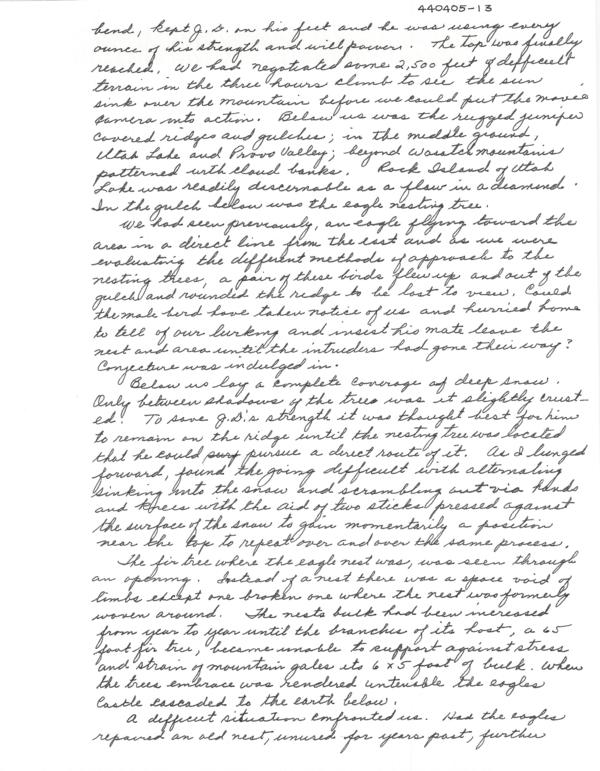 440405-13
bend, kept J.D. on his feet and he was using every
ounce of his strength and will power. The top was finally
reached. We had negotiated some 2,500 feet of difficult
terrain in the three hours climb to see the sun
sink over the mountain before we could put the movie
camera into action. Below us was the rugged juniper
covered ridges and gulches; in the middle ground,
Utah Lake and Provo Valley; beyond Wasatch mountains
patterned with cloud banks. Rock Island of Utah
Lake was readily discernable as a flaw in a diamond.
In the gulch below was the eagle nesting tree.
We had seen previously, an eagle flying toward the
area in a direct line from the east and as we were
evaluating the different methods of approach to the
nesting trees, a pair of these birds flew up and out of the
gulch and rounded the ridge to be lost to view. Could
the male bird have taken notice of us and hurried home
to tell of our lurking and insist his mate leave the
nest and area until the intruders had gone their way?
Conjecture was indulged in.
Below us lay a complete coverage of deep snow.
Only between shadows of the trees was it slightly crust-
ed. To save J.D.'s strength it was thought best for him
to remain on the ridge until the nesting tree was located
that he could pursue a direct route of it. As I lunged
forward, found the going difficult with alternating
sinking into the snow and scrambling out via hands
and knees with the aid of two sticks pressed against
the surface of the snow to gain momentarily a position
near the top to repeat over and over the same process.
The fir tree where the eagle nest was, was seen through
an opening. Instead of a nest there was a space void of
limbs except one broken one where the nest was formerly
woven around. The nests bulk had been increased
from year to year until the branches of its host, a 65
foot fir tree, became unable to support against stress
and strain of mountain gales its 6 x 5 foot of bulk. When
the trees embrace was rendered untenable the eagles
Castle cascaded to the earth below.
A difficult situation confronted us. Had the eagles
repaired an old nest, unused for years past, further